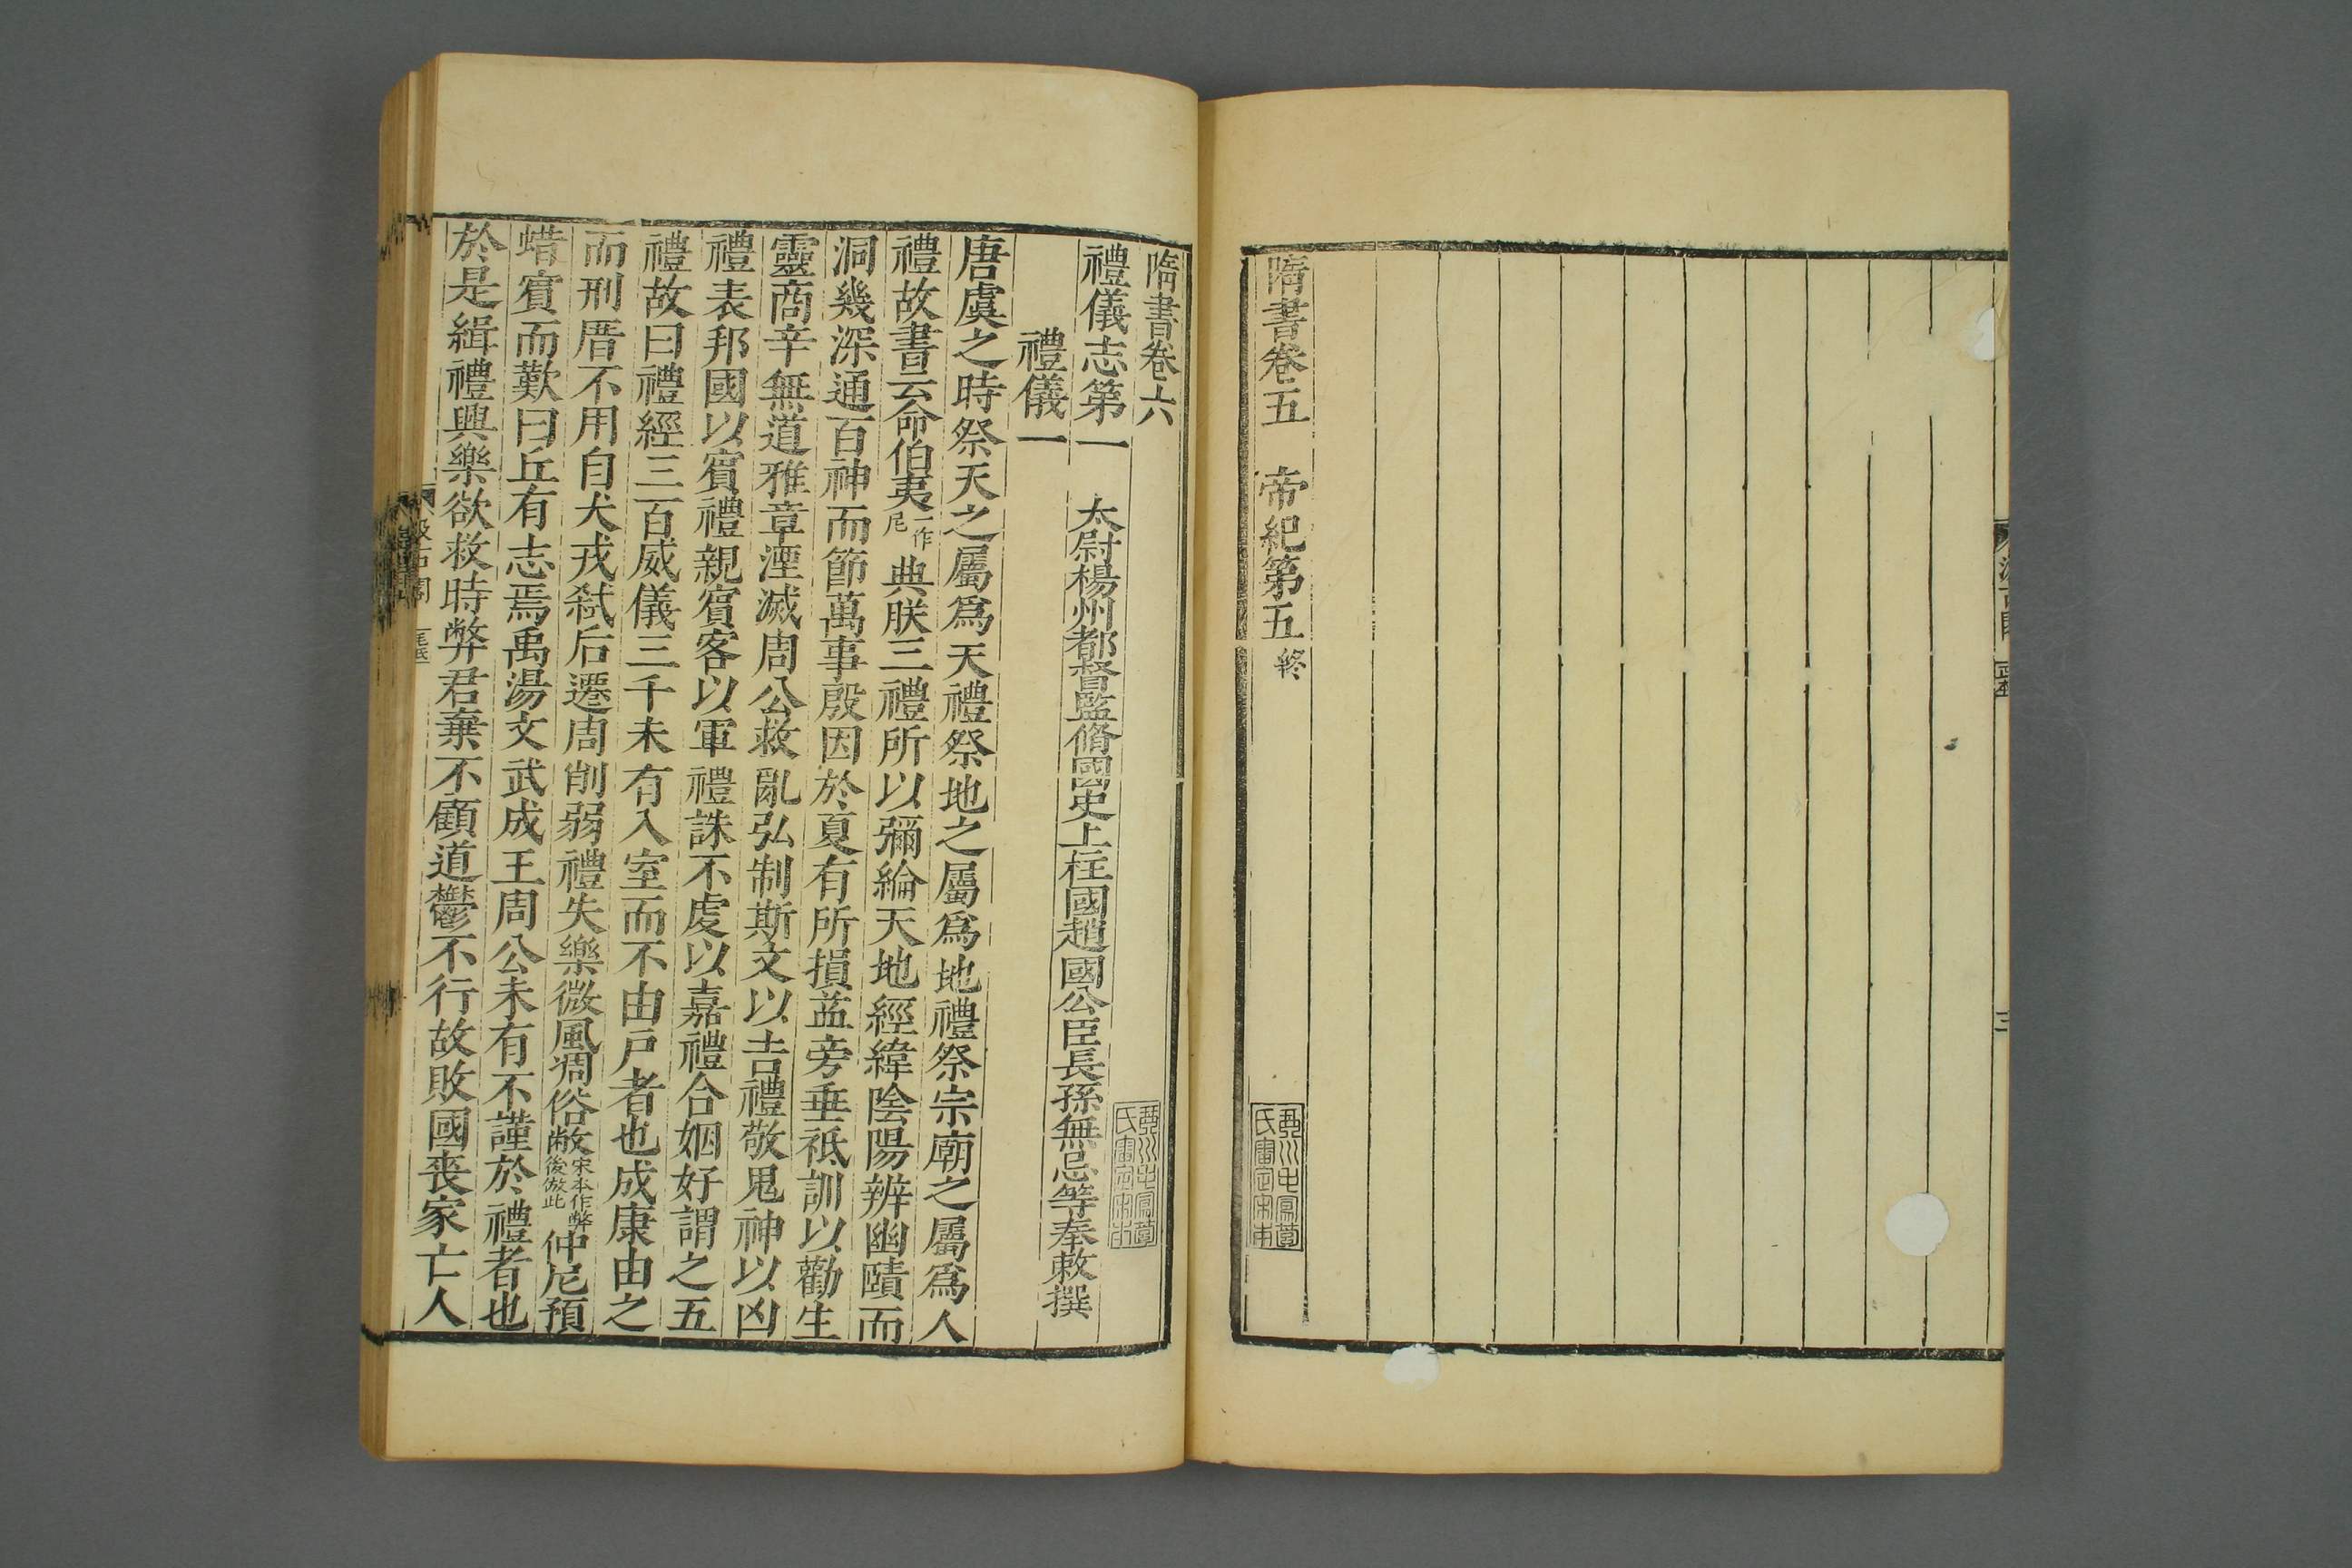 隋書卷五 帝紀第五 終
隋書卷六
禮儀志第一
太尉楊州都督監脩國史上柱國趙國公臣長孫無忌等奉敕撰
禮儀一
唐虞之時祭天之屬爲天禮祭地之屬爲地禮祭宗廟之屬爲人
禮故書云命伯夷一作尼典朕三禮所以彌綸天地經緯陰陽辨幽賾而
洞幾深通百神而節萬事殷因於夏有所損益旁垂祗訓以勸生
靈商辛無道雅章湮滅周公救亂弘制斯文以吉禮敬鬼神以凶
禮表邦國以賓禮親賓客以軍禮誅不虔以嘉禮合姻好謂之五
禮故曰禮經三百威儀三千未有入室而不由戶者也成康由之
而刑厝不用自犬戎弑后遷周削弱禮失樂微風凋俗敝宋本作弊後倣此仲尼預
蜡賓而歎曰丘有志焉禹湯文武成王周公未有不謹於禮者也
於是緝禮興樂欲救時弊君棄不顧道鬱不行故敗國喪家亡人